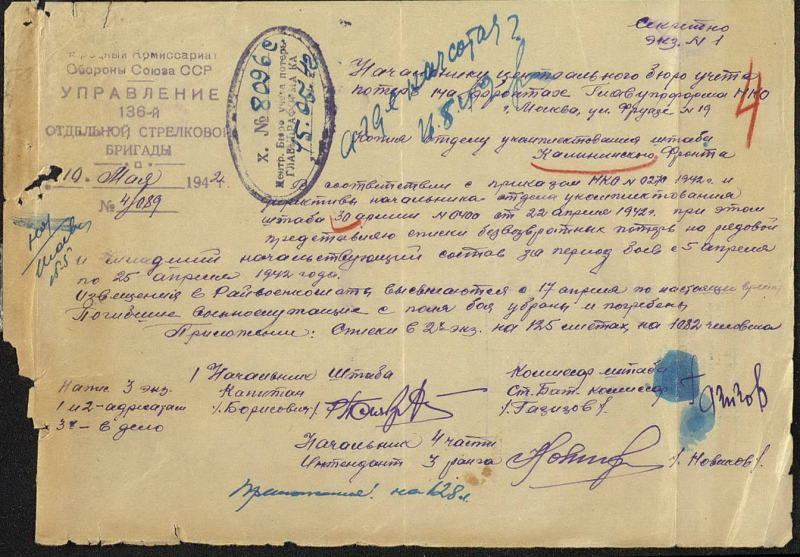 Секретно
экз. № 1
Народный Комиссариат
Обороны Союза ССР
УПРАВЛЕНИЕ
136-й
ОТДЕЛЬНОЙ СТРЕЛКОВОЙ
БРИГАДЫ
10 Мая 1942
№ 4/089
Х. № 8096с
Центр. Бюро Учета потерь
4
Начальнику центрального бюро учета
потерь на фронтах Главупрформа НКО
г. Москва, ул. Фрунзе № 19
Копия отделу укомплектования штаба
Калининского Фронта
В соответствии с приказом НКО № 0270 1942 г. и
директивы начальника отдела укомплектования
штаба 30 армии № 0400 от 22 апреля 1942г. при этом
представляю списки безвозвратных потерь на рядовой
и младший начальствующий состав за период боев с 5 апреля
по 25 апреля 1942 года.
Извещения в Райвоенкоматы высылаются с 17 апреля по настоящее время
Погибшие военнослужащие с поля боя убраны и погребены
Приложение: Списки в 2х экз. на 125 листах, на 1082 человека
Начальник Штаба
Капитан
/Борисович/
Комиссар штаба
Ст. Бат. комиссар
/Газизов/
Напис. 3 экз.
1 и 2 - адресатам
3й - в дело
Начальник 4 части
Интендант 3 ранга
/Новиков/
Приложения: на 128 л.